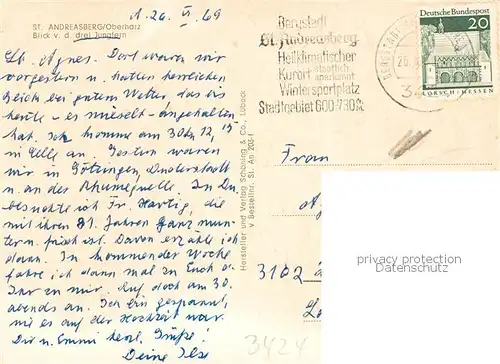 ST. ANDREASBERG/Oberharz
Blick v. d. drei Jungfern
d. 20. VI. 69
Lb. Agnes. Dort waren wir
vorgestern u. hatten herrlichen
bei gutem Wetter, das bis
heute - es nieselt - angehalten
hat. Ich komme am 30. 12,15
in Celle an. Gestern waren
wir in Göttingen, Duderstadt
u. an der Rhumequelle. In Du.
besuchte ich Fr. Hartig, die
mit ihren 81 Jahren ganz mun-
ter u. frisch ist. Davon erzähle ich
dann. In kommender Woche
fahre ich dann mal zu Euch o.
Ihr zu mir. Ruf doch am 30.
abends an. Ich bin gespannt,
wie es auf der Hochzeit war.
Dir u. Emmi herzl. Grüße!
Deine Ilse
Hersteller und Verlag Schöning & Co., Lübeck
v Bessellnr. St. An 205 f
Bergstadt
St. Andreasberg
Heilklimatischer
Kurort staatlich anerkannt
Wintersportplatz
Stadtgebiet 600-730
Deutsche Bundespost
20
LORSCH · HESSEN
Frau
3102
privacy protection
Datenschutz
3424